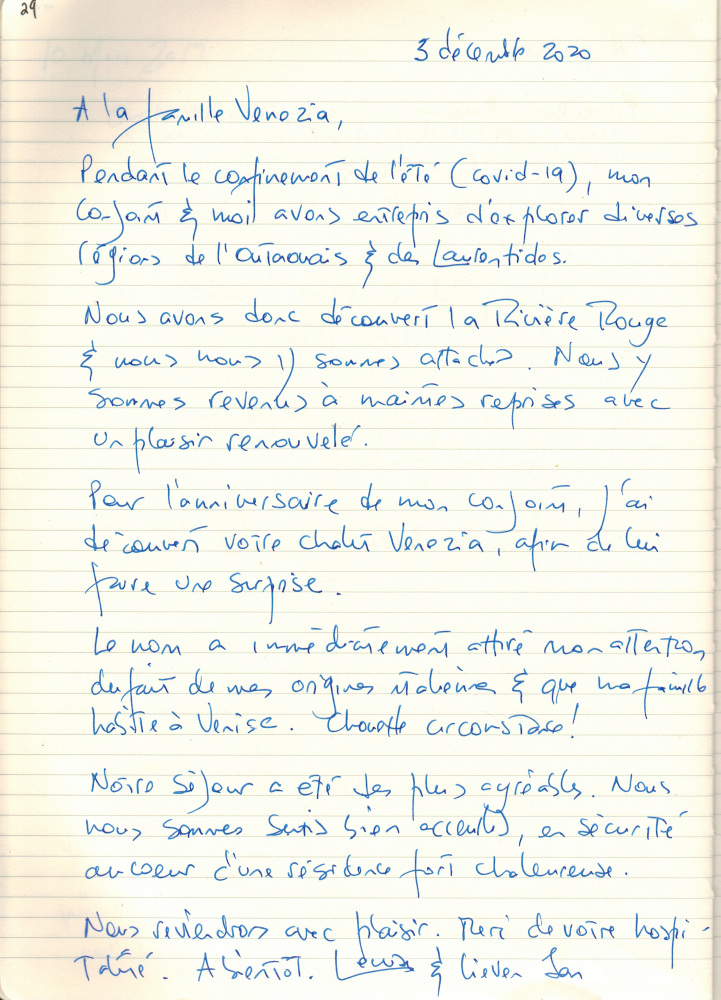 29
3 décembre 2020
A la famille Venezia,
Pendant le confinement de l'été (covid-19), mon
conjoint & moi avons entrepris d'explorer diverses
régions de l'Outaouais & des Laurentides.
Nous avons donc découvert la Rivière Rouge
& nous nous y sommes attachés. Nous y
sommes revenus à maintes reprises avec
un plaisir renouvelé.
Pour l'anniversaire de mon conjoint, j'ai
découvert votre chalet Venezia, afin de lui
faire une surprise.
Le nom a immédiatement attiré mon attention,
du fait de mes origines italiennes & que ma famille
habite à Venise. Chouette circonstance!
Notre séjour a été des plus agréables. Nous
nous sommes sentis bien accueillis, en sécurité
au coeur d'une résidence fort chaleureuse.
Nous reviendrons avec plaisir. Merci de votre hospi-
talité. A bientôt. & Lieven